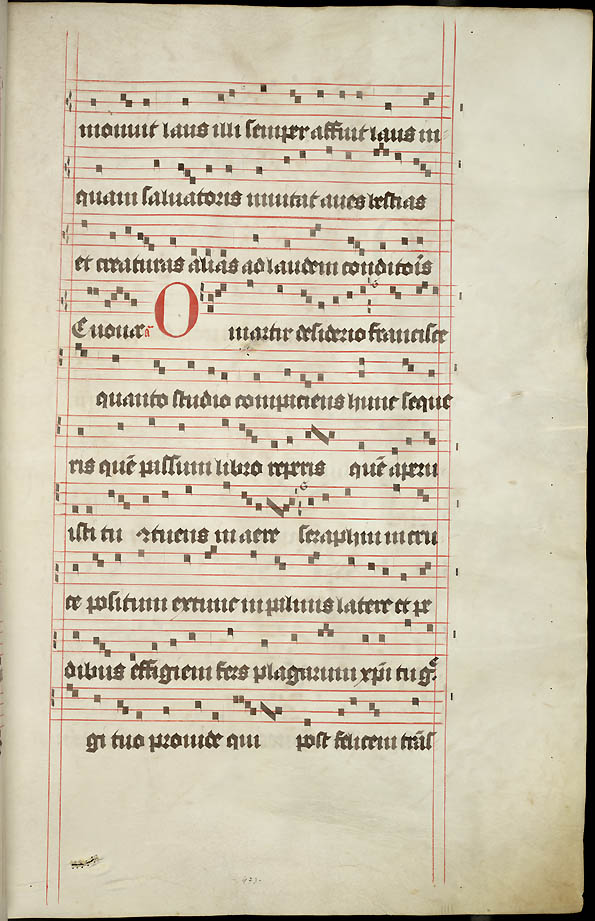 mouuit laus illi semper affuit laus in
quam saluatoris inuitat aues bestias
et creaturas alias ad laudem conditoīs
Euouae a O martir desiderio francisce
quanto studio compaciens hunc seque
ris quē passum libro reperis quē aperu
isti tu Intuens in aere seraphin in cru
ce positum extunc in palmis latere et pe
dibus effigiem fers plagarum xp̄i tu g̃e
gi tuo prouide qui post felicem trāſ